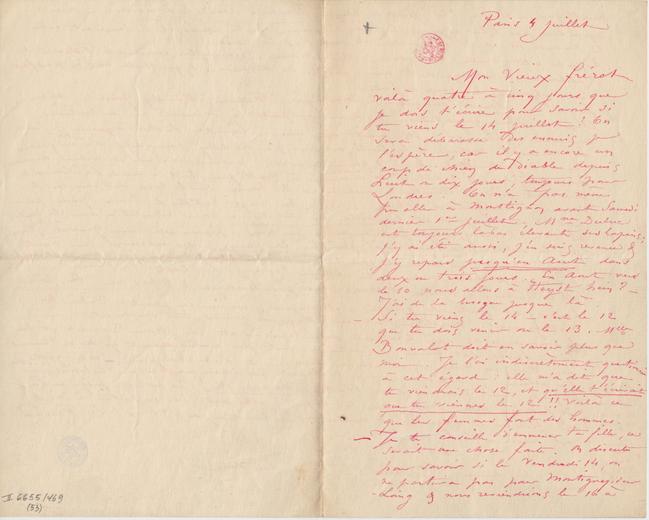 Paris 4 juillet
Mon Vieux frérot
voilà quatre à cinq jours que
je dois t'écrire pour savoir si
tu viens le 14 juillet! On
sera débarassé des ennuis je
l'espère, car il y a encore un
coup de chien du Diable depuis
huit ou dix jours, toujours pour
Londres. On n'a pas même
pu aller à Montigny avant Samedi
dernier 1er juillet. Mme
est toujours labas
j'y ai été aussi, j'en suis revenu &
j'y repars jusqu'en Aout dans
deux ou trois jours. En Aout vers
le 10 nous allons à Heyst hein? -
J'ai de la besogne jusque là
- Si tu viens le 14 - c'est le 12
que tu dois venir ou le 13. Melle
Bonvalot doit en savoir plus que
moi. Je l'ai indiscrètement questionnée
à cet égard: elle m'a dit que
tu viendrais le 12, et qu'elle t'écrivait
que tu viennes le 12!! Voilà ce
que les femmes font des hommes.
- Je te conseille d'emmener ta fille, ce
serait une chose faite. On discute
pour savoir si le Vendredi 14, on
ne partira pas pour Montigny sur
Loing & nous reviendrions le 16 à
II 6655/469
(53)